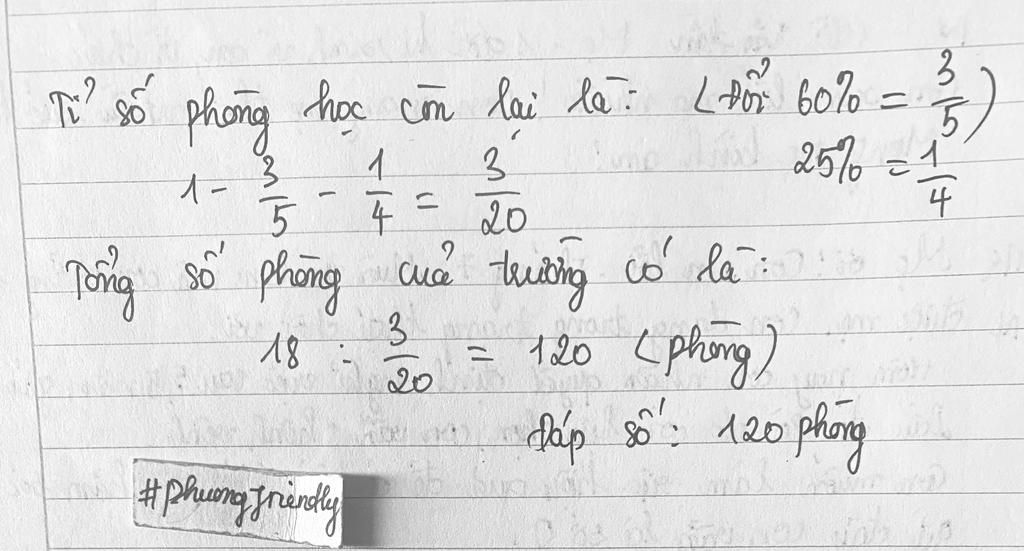 Tỉ số phòng học còn lại là: (Đổi 60% = 3/5)
25% = 1/4
1 - 3/5 - 1/4 = 3/20
Tổng số phòng của trường có là:
18 : 3/20 = 120 (phòng)
Đáp số: 120 phòng
#phuongfriendly